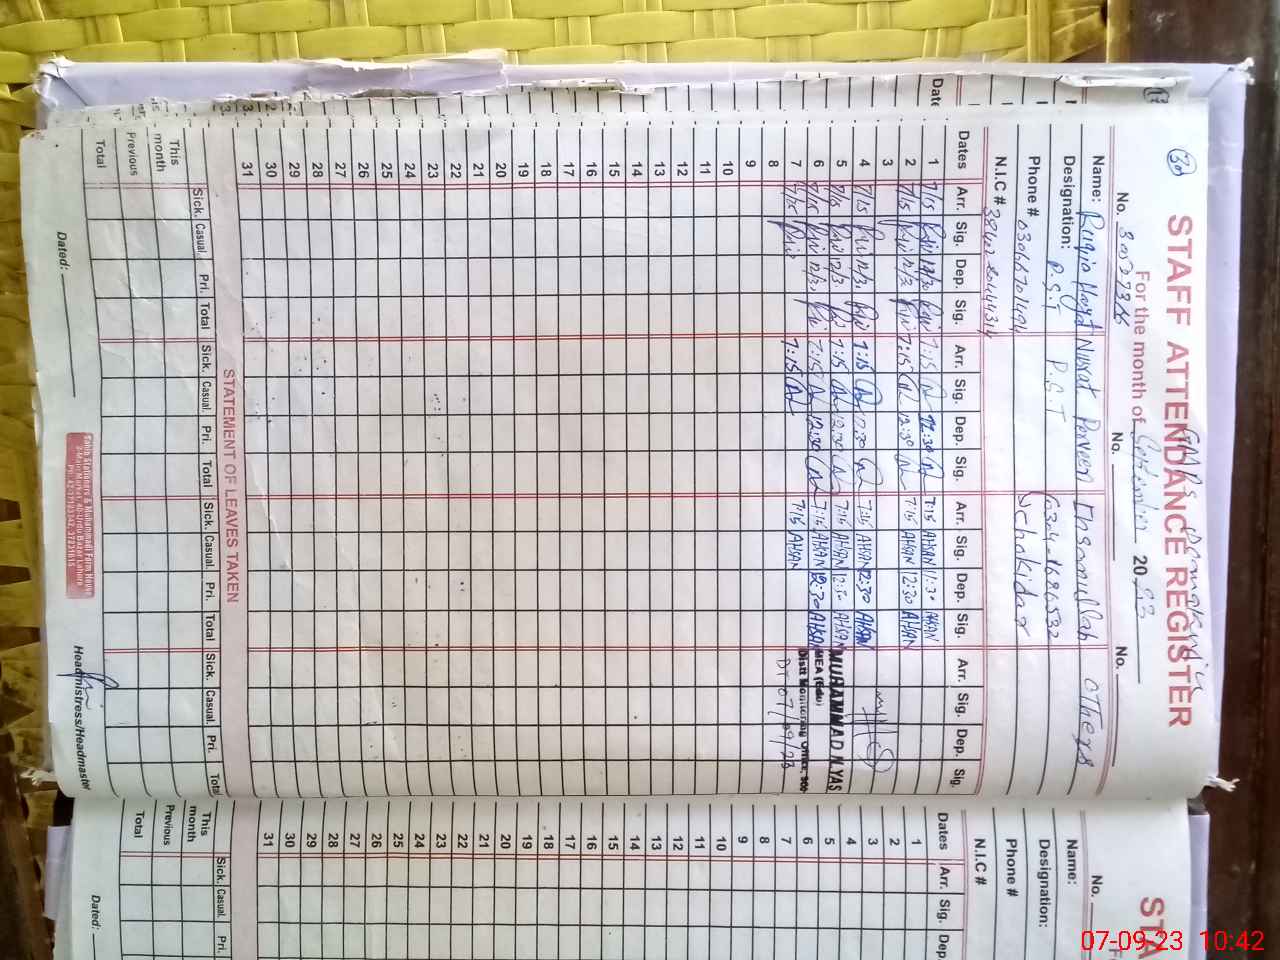 30
STAFF ATTENDANCE REGISTER
For the month of September 2023
No. No. No.
Name: Ruqia Hayat Nusrat Perveen Ehsanullah others
Designation: P.S.T P.S.T
Phone #
N.I.C #
Dates Arr. Sig. Dep. Sig. Arr. Sig. Dep. Sig. Arr. Sig. Dep. Sig. Arr. Sig. Dep. Sig.
1 7/15 12/30 7:15 7:15 AHSAN 11:30 AHSAN
2 7/15 12/30 7:15 12:30 7:15 AHSAN 12:30 AHSAN
3
4 7/15 7:15 12:30 7:15 AHSAN 12:30 AHSAN
5 7/15 7:15 12:30 7:15 AHSAN 12:30 AHSAN
6 7/15 7:15 12:30 7:15 AHSAN 12:30 AHSAN
7 7/15 7:15 7:15 AHSAN
8
9
10
11
12
13
14
15
16
17
18
19
20
21
22
23
24
25
26
27
28
29
30
31
MUHAMMAD ILYAS
MEA (Edu)
Distt Monitoring Officer,
DT 07/09/23
STATEMENT OF LEAVES TAKEN
Sick. Casual. Pri. Total Sick. Casual. Pri. Total Sick. Casual. Pri. Total Sick. Casual. Pri. Total
This month
Previous
Total
Dated:
Headmistress/Headmaster
Sahib Stationery & Muhammadi Form House
2-Main Market, 40-Urdu Bazar Lahore
STA
No.
Name:
Designation:
Phone #
N.I.C #
Dates Arr. Sig. Dep.
1
2
3
4
5
6
7
8
9
10
11
12
13
14
15
16
17
18
19
20
21
22
23
24
25
26
27
28
29
30
31
Sick. Casual. Pri.
This month
Previous
Total
Dated:
07-09-23 10:42